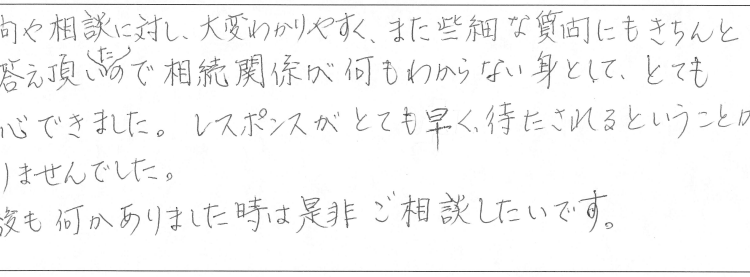 問や相談に対し、大変わかりやすく、また些細な質問にもきちんと
答え頂いたので相続関係が何もわからない身として、とても
心できました。レスポンスがとても早く、待たされるということが
りませんでした。
後も何かありました時は是非ご相談したいです。